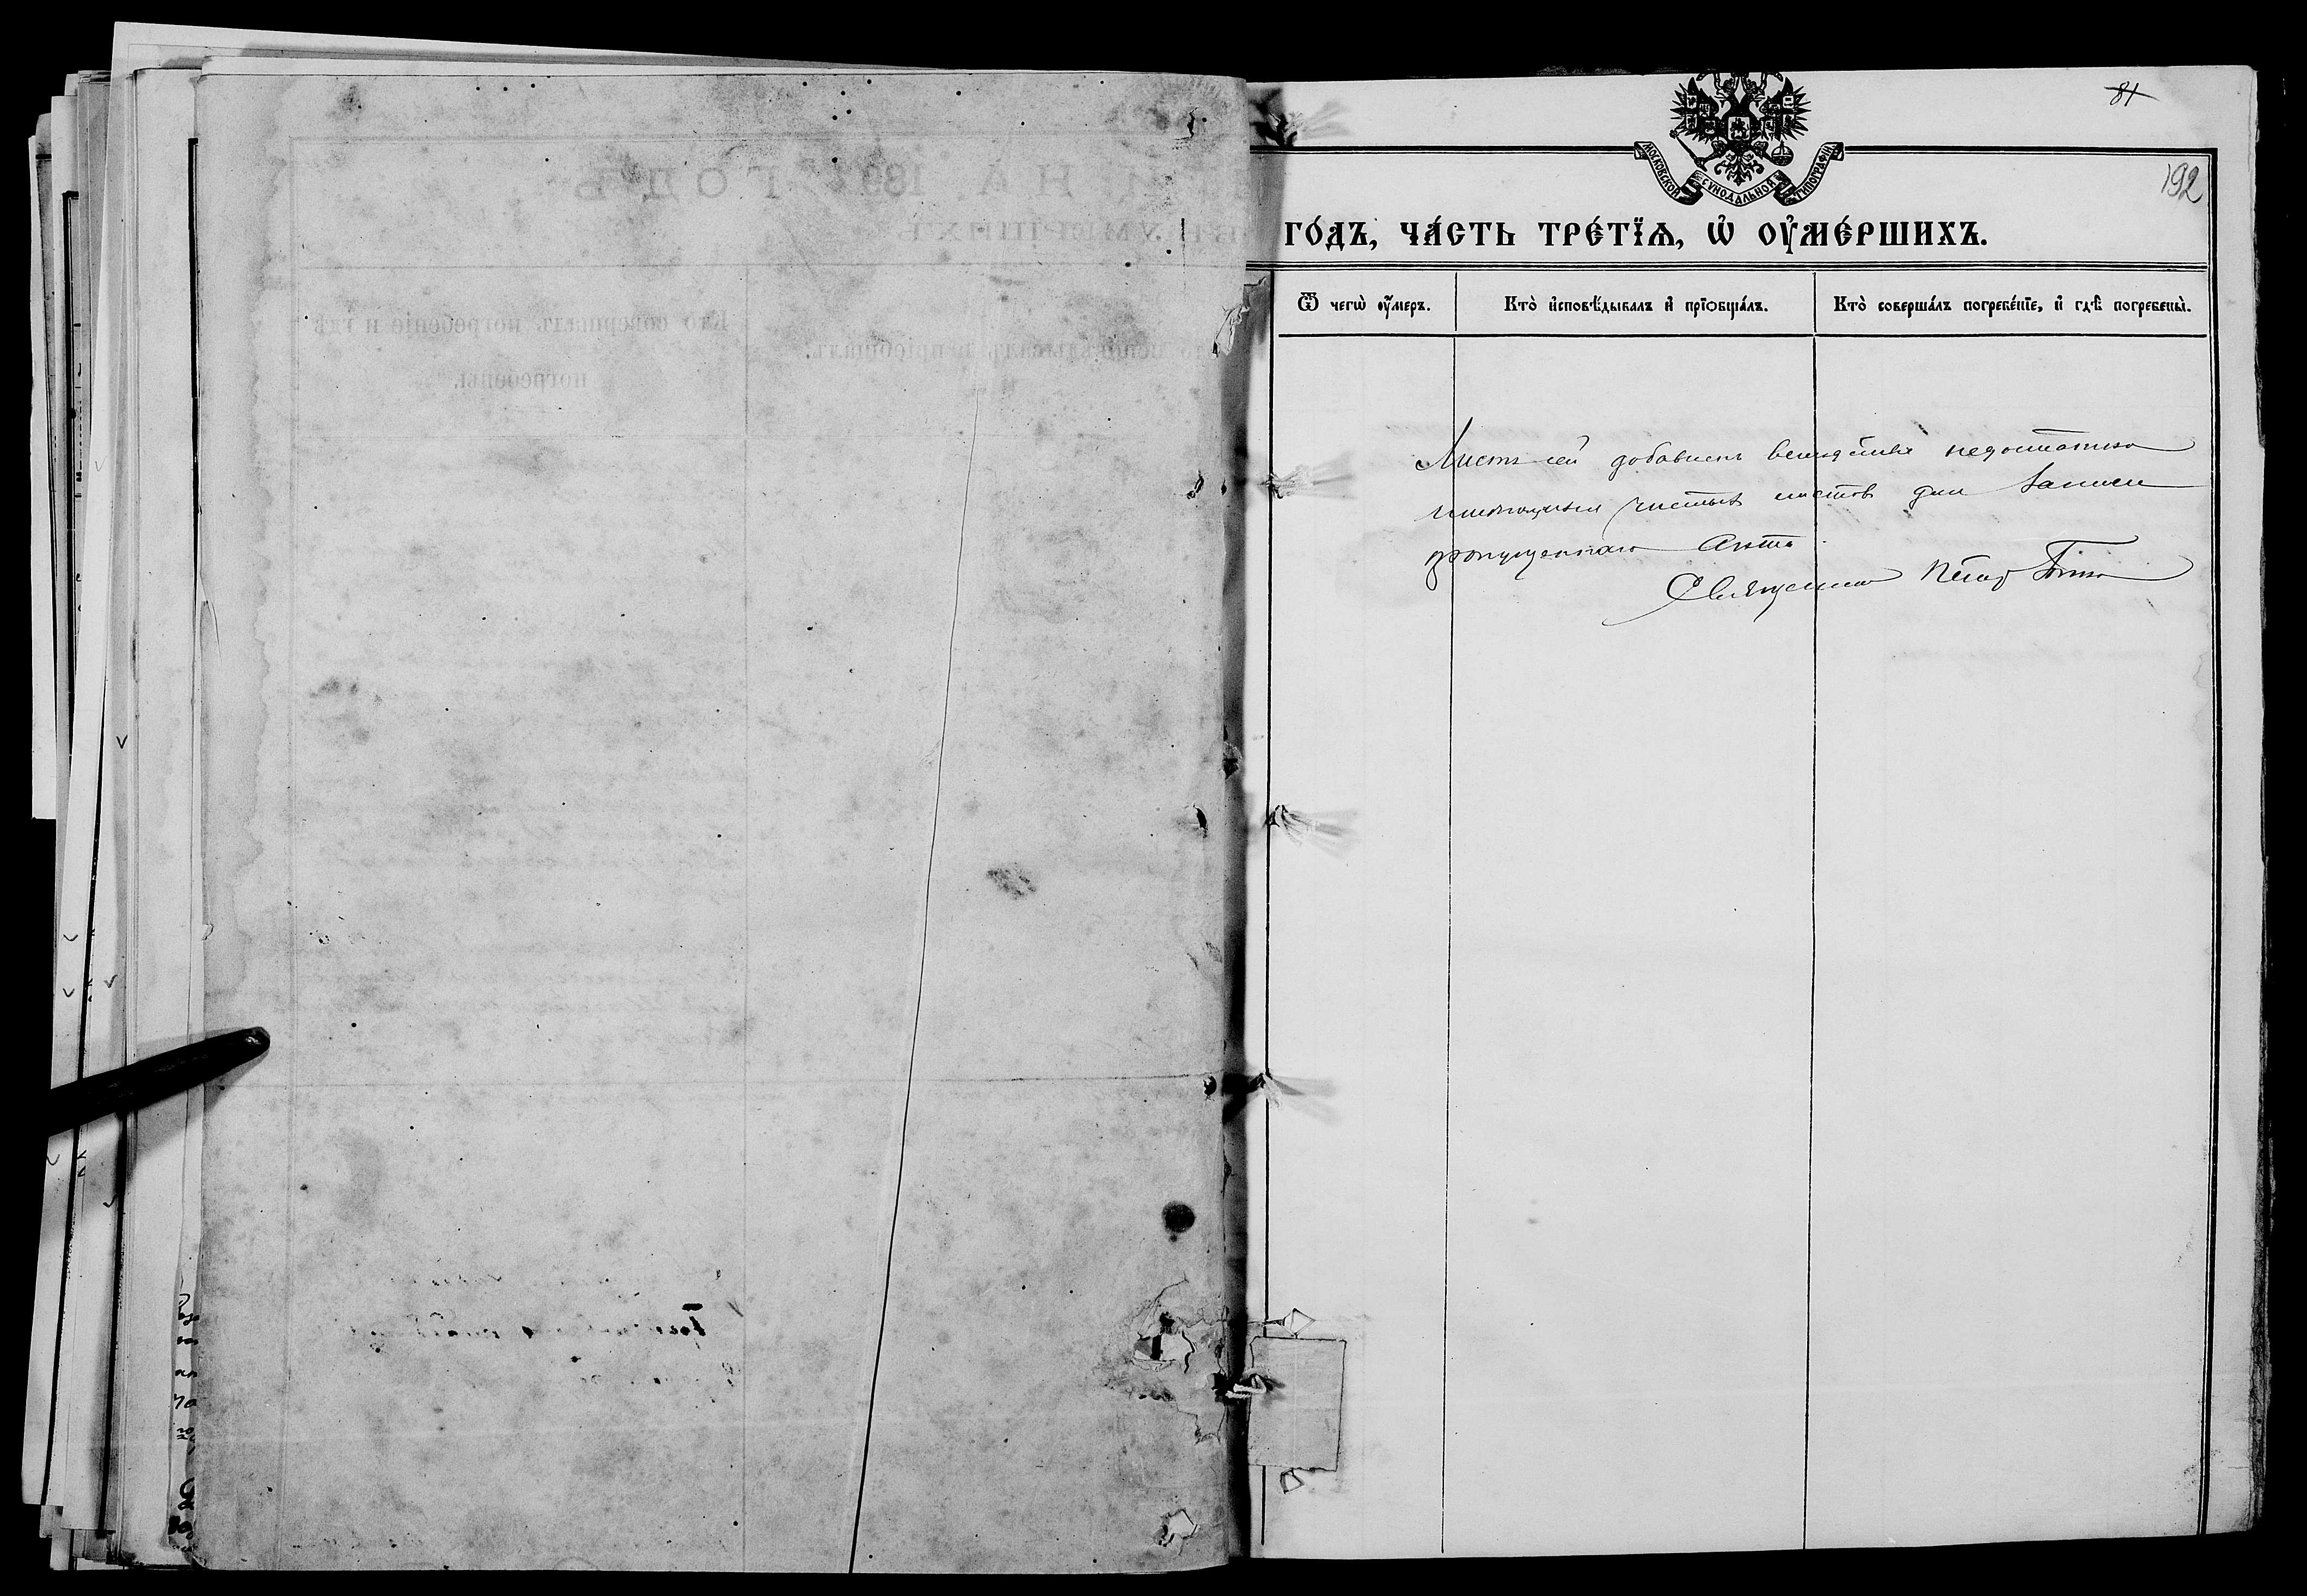 81
192
МОСКОВСКОЙ СѴНОДАЛЬНОЙ ТИПОГРАФІИ
ГО́ДЪ, ЧА́СТЬ ТРЕ́ТЇѦ, Ѡ҆ ОУ҆МЕ́РШИХЪ.
Ѿ чегѡ̀ оу҆́меръ.
Кто̀ и҆сповѣ́дывалъ и҆ прїѡбща́лъ.
Кто̀ соверша́лъ погребе́нїе, и҆ гдѣ̀ погребены̀.
Листъ сей добавленъ вслѣдствіе недостатка
имеющихся чистыхъ листовъ для записи
пропущеннаго акта.
Священник Петръ